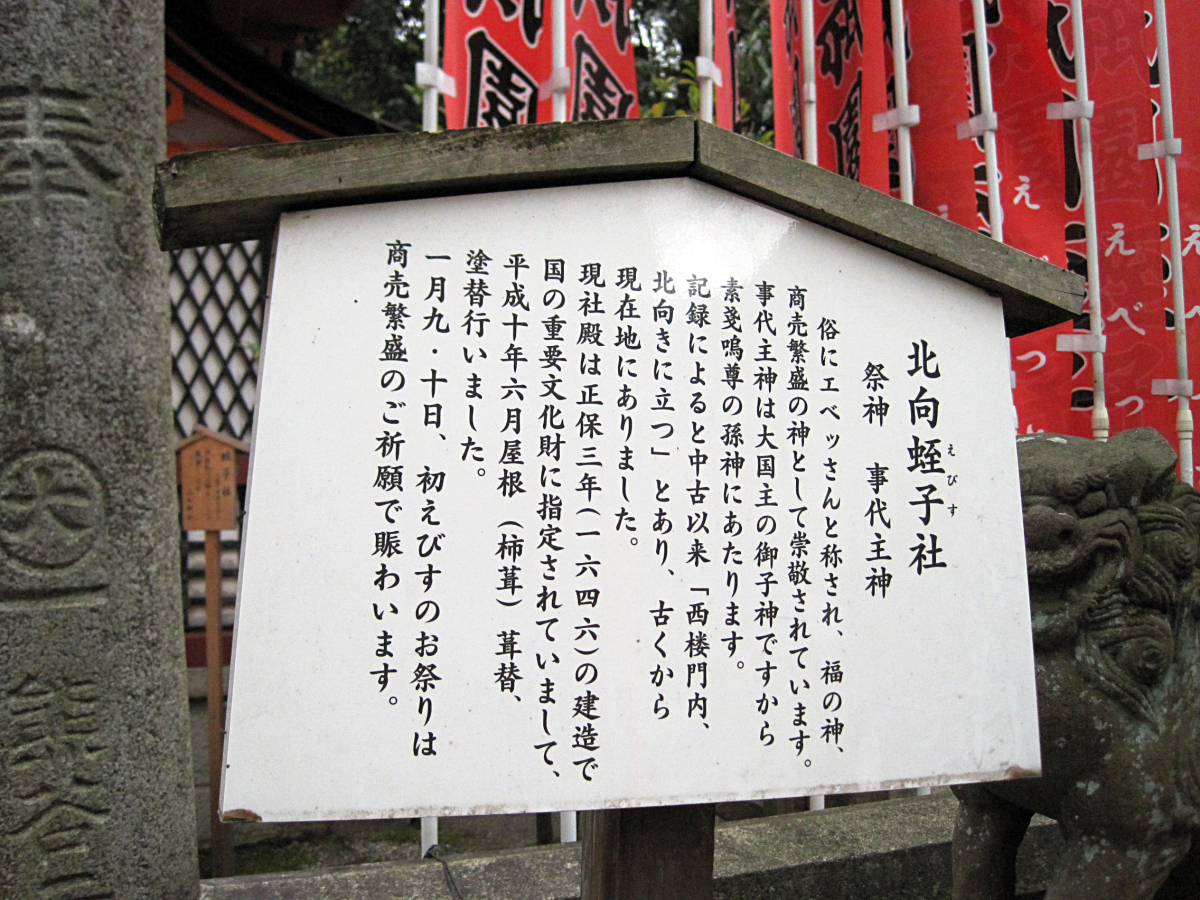 北向蛭子社
えびす
祭神 事代主神
俗にエベッさんと称され、福の神、
商売繁盛の神として崇敬されています。
事代主神は大国主の御子神ですから
素戔嗚尊の孫神にあたります。
記録によると中古以来「西楼門内、
北向きに立つ」とあり、古くから
現在地にありました。
現社殿は正保三年(一六四六)の建造で
国の重要文化財に指定されていまして、
平成十年六月屋根(柿葺)葺替、
塗替行いました。
一月九・十日、初えびすのお祭りは
商売繁盛のご祈願で賑わいます。
奉
園
園
園
えべっ
えべっ
え